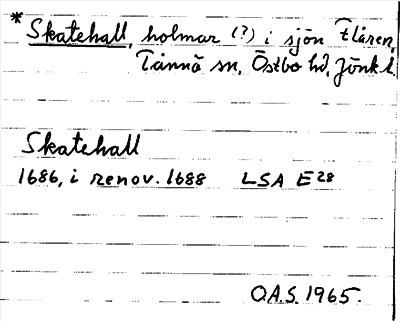 * Skatehall, holmar (?) i sjön Flåren,
Tånnö sn, Östbo hd, Jönk l.
Skatehall
1686, i renov. 1688 LSA E28
O.A.S. 1965.